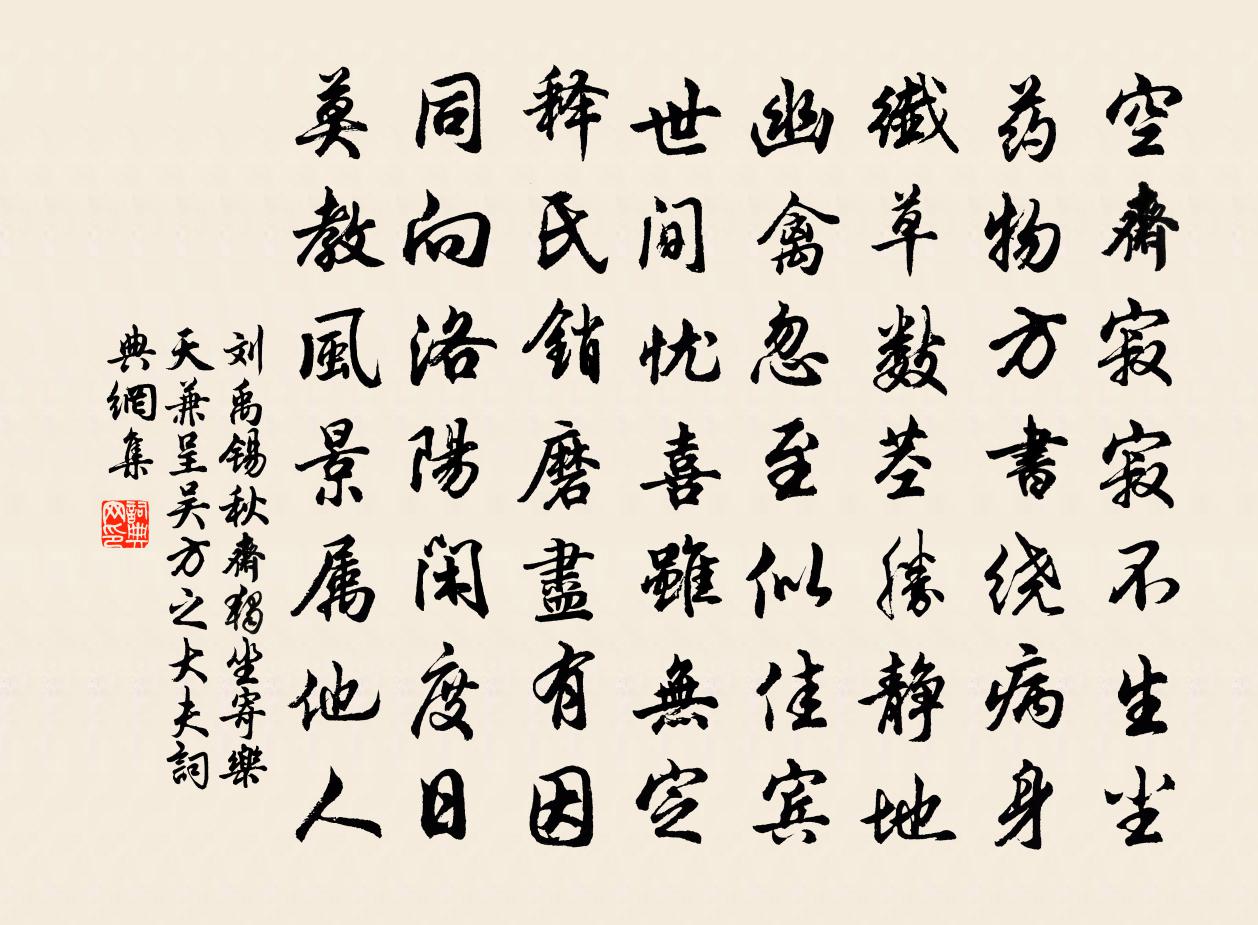 空齋寂寂不生尘
药物方書绕病身
纖草數茎勝静地
幽禽忽至似佳宾
世间忧喜雖無定
释氏銷磨盡有因
同向洛陽闲度日
莫教風景属他人
刘禹锡秋齋獨坐寄樂
天兼呈吴方之大夫詞
典網集
詞典网印